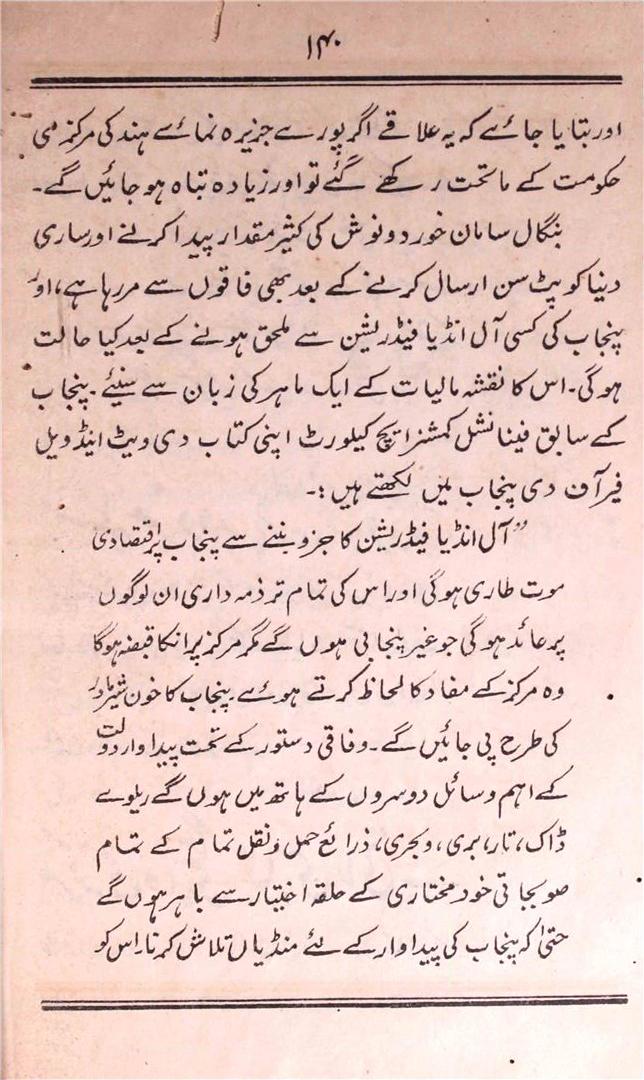 ۱۴۰
اور بتایا جائے کہ یہ علاقے اگر پورے جزیرہ نمائے ہند کی مرکز می
حکومت کے ماتحت رکھے گئے تو اور زیادہ تباہ ہو جائیں گے۔
بنگال سامان خورد و نوش کی کثیر مقدار پیدا کرنے اور ساری
دنیا کو پٹ سن ارسال کرنے کے بعد بھی فاقوں سے مر رہا ہے، اور
پنجاب کی کسی آل انڈیا فیڈریشن سے ملحق ہونے کے بعد کیا حالت
ہو گی۔ اس کا نقشہ مالیات کے ایک ماہر کی زبان سے سنیئے۔ پنجاب
کے سابق فینانشل کمشنر ایچ کیلورٹ اپنی کتاب دی ویٹ اینڈ ویل
فیر آف دی پنجاب میں لکھتے ہیں :۔
”آل انڈیا فیڈریشن کا جزو بننے سے پنجاب پر اقتصادی
موت طاری ہو گی اور اس کی تمام تر ذمہ داری ان لوگوں
پر عائد ہو گی جو غیر پنجابی ہوں گے مگر مرکز پر انکا قبضہ ہو گا
وہ مرکز کے مفاد کا لحاظ کرتے ہوئے پنجاب کا خون شیر مادر
کی طرح پی جائیں گے۔ وفاقی دستور کے تحت پیداوار دولت
کے اہم وسائل دوسروں کے ہاتھ میں ہوں گے ریلوے
ڈاک، تار، بری، و بحری، ذرائع حمل و نقل تمام کے تمام
صوبجاتی خود مختاری کے حلقہ اختیار سے باہر ہوں گے
حتیٰ کہ پنجاب کی پیداوار کے لئے منڈیاں تلاش کرنا۔ اس کو